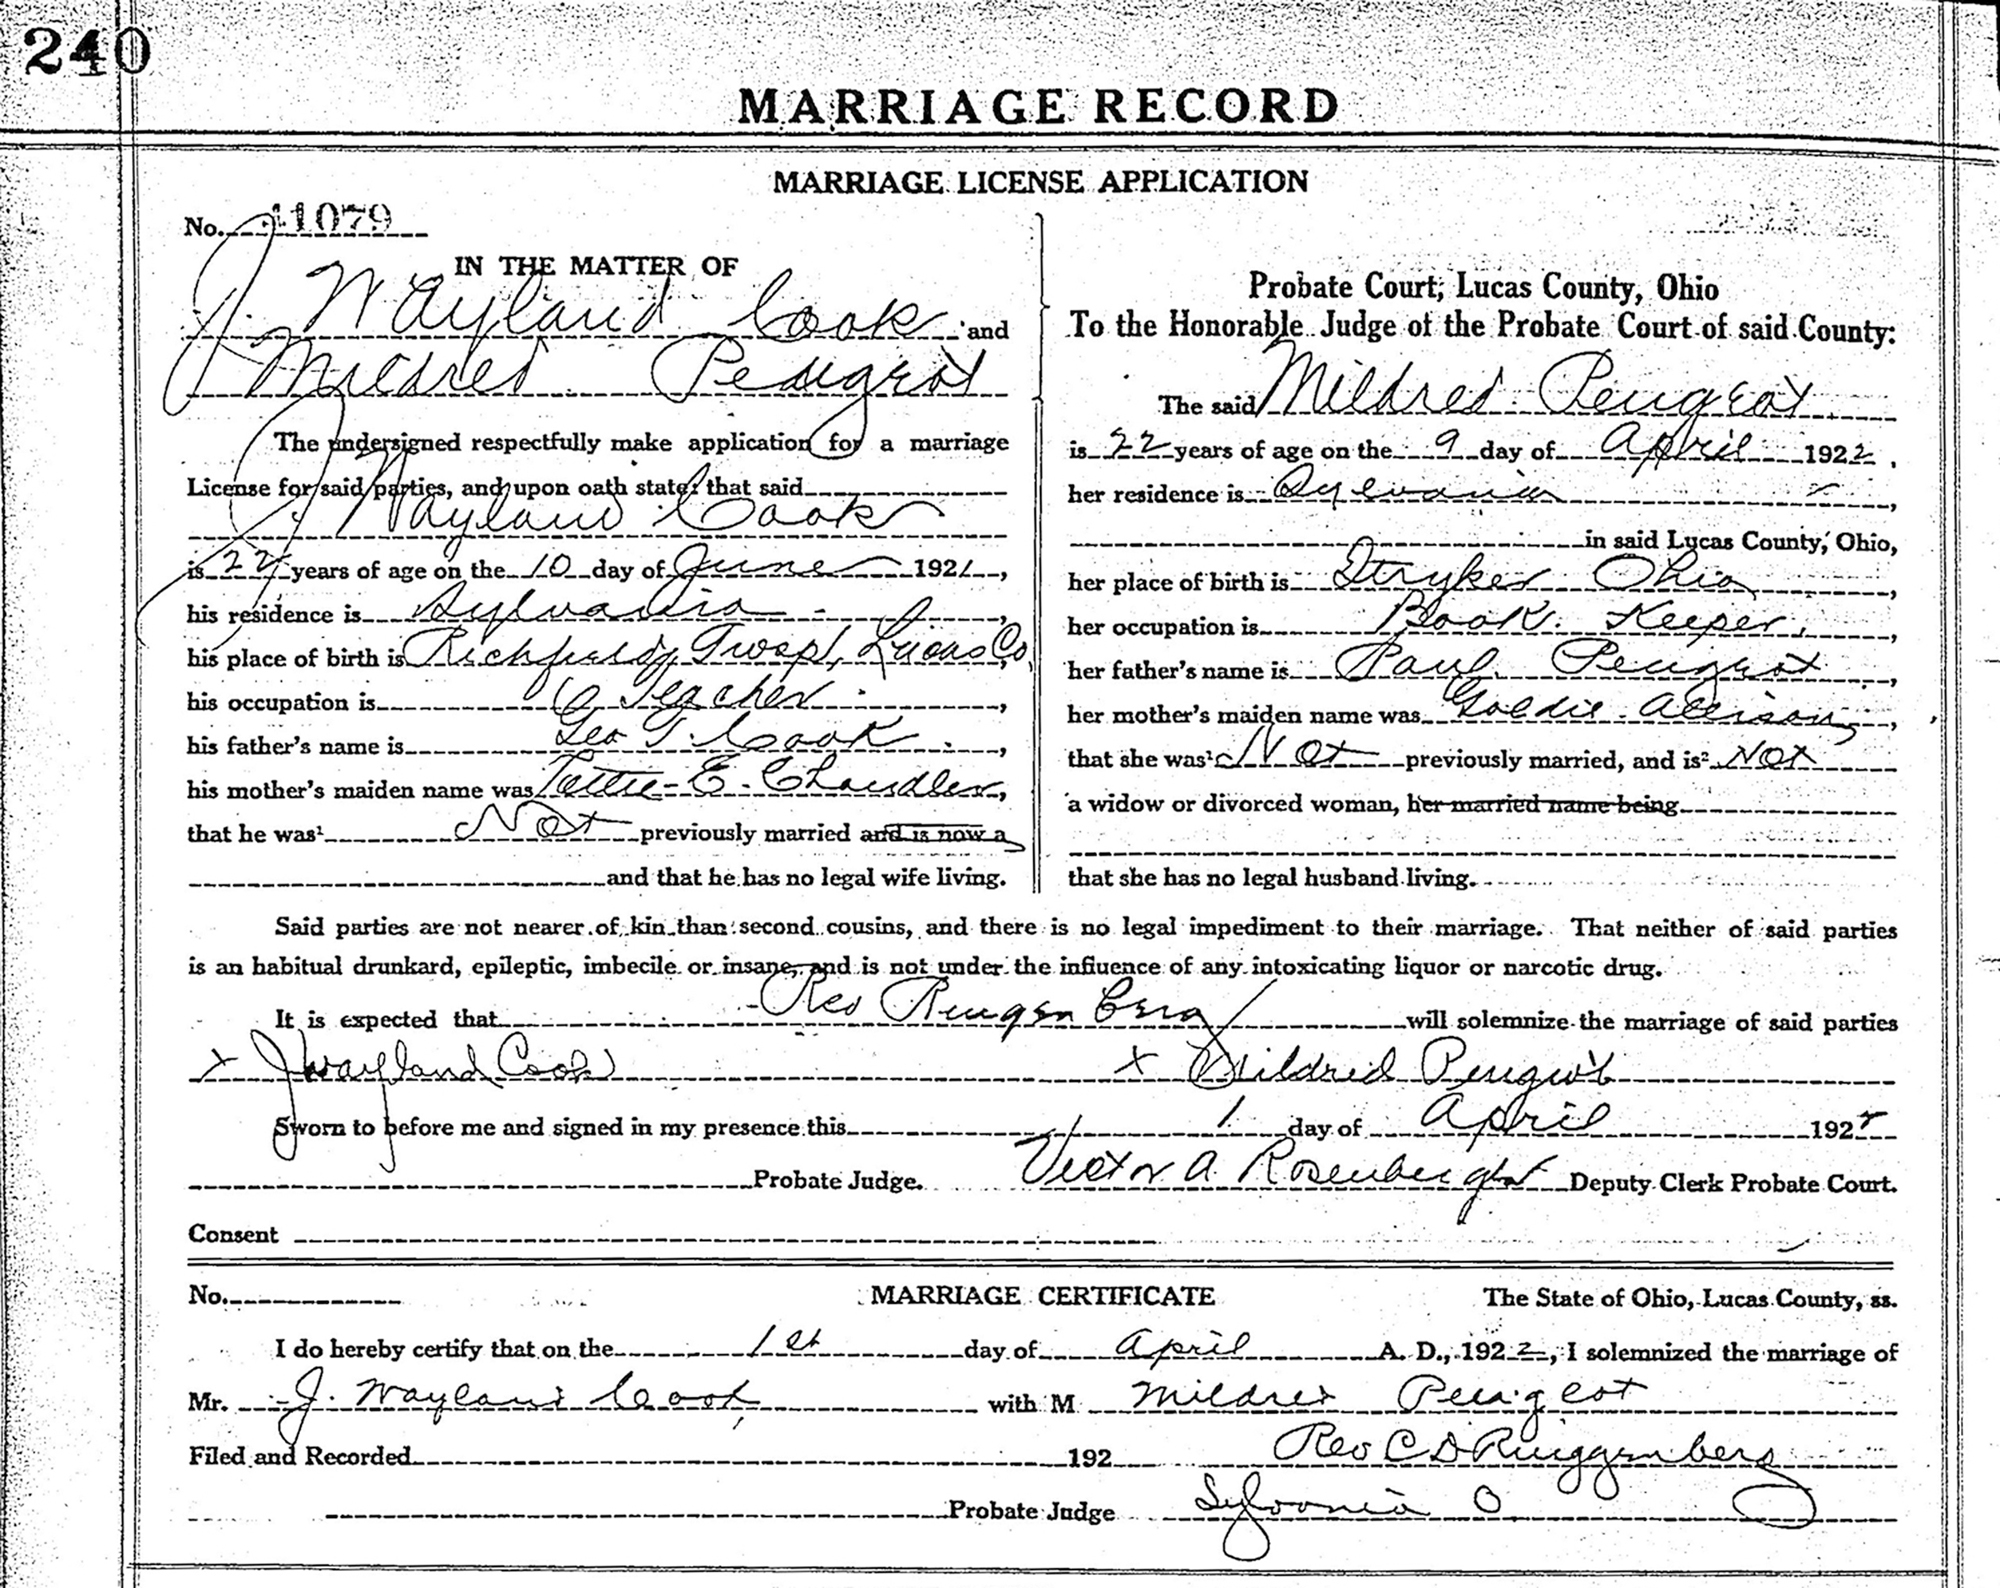 240
MARRIAGE RECORD
MARRIAGE LICENSE APPLICATION
No. 41079
IN THE MATTER OF
J. Wayland Cook and
Mildred Peugeot
The undersigned respectfully make application for a marriage
License for said parties, and upon oath state that said
J. Wayland Cook
is 22 years of age on the 10 day of June 1921,
his residence is Sylvania,
his place of birth is Richfield Twsp, Lucas Co,
his occupation is Teacher,
his father's name is Geo T. Cook,
his mother's maiden name was E. Chandler,
that he was¹ Not previously married and is now a
and that he has no legal wife living.
Probate Court, Lucas County, Ohio
To the Honorable Judge of the Probate Court of said County:
The said Mildred Peugeot
is 22 years of age on the 9 day of April 1922,
her residence is Sylvania,
in said Lucas County, Ohio,
her place of birth is Stryker Ohio,
her occupation is Book Keeper,
her father's name is Paul Peugeot,
her mother's maiden name was Goldie Allison,
that she was¹ Not previously married, and is² Not
a widow or divorced woman, her married name being
that she has no legal husband living.
Said parties are not nearer of kin than second cousins, and there is no legal impediment to their marriage. That neither of said parties
is an habitual drunkard, epileptic, imbecile or insane, and is not under the influence of any intoxicating liquor or narcotic drug.
It is expected that Rev will solemnize the marriage of said parties
x J Wayland Cook x Mildred Peugeot
Sworn to before me and signed in my presence this 1 day of April 1922
Probate Judge. Victor A. Deputy Clerk Probate Court.
Consent
No. MARRIAGE CERTIFICATE The State of Ohio, Lucas County, ss.
I do hereby certify that on the 1st day of April A. D., 1922, I solemnized the marriage of
Mr. J. Wayland Cook with M Mildred Peugeot
Filed and Recorded 192 Rev C D Ringgenberg
Probate Judge Sylvania O